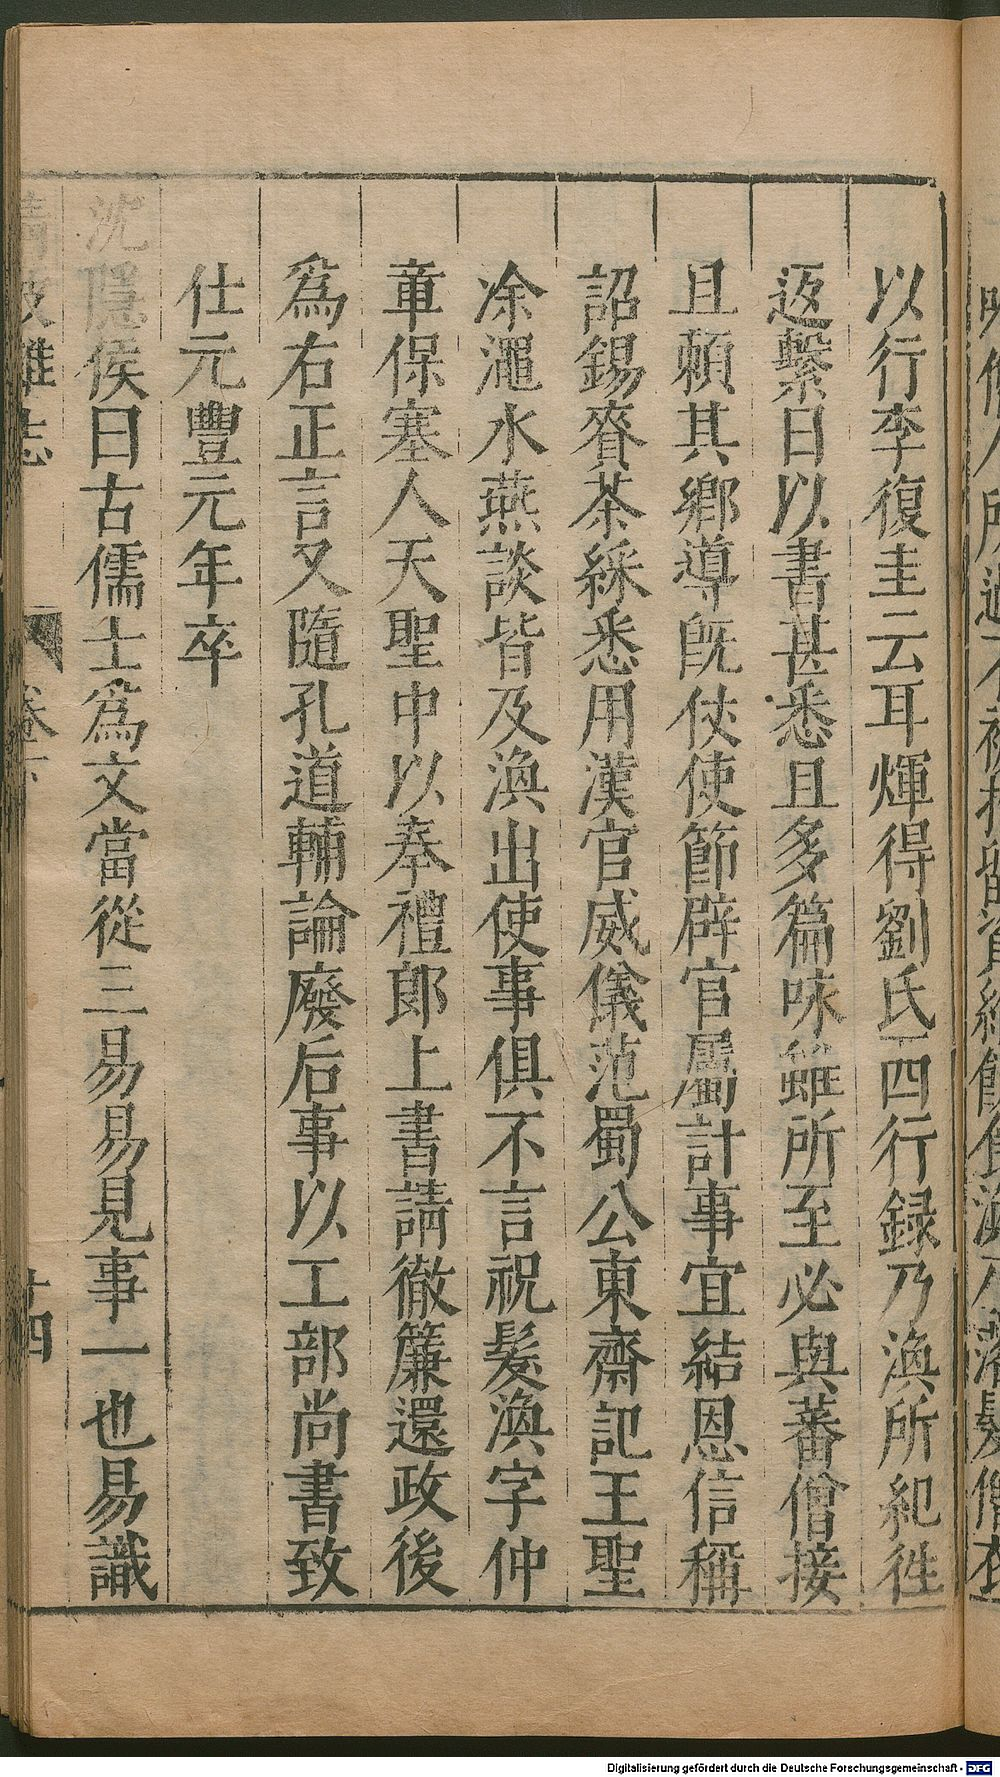 以行李復圭云耳煇得劉氏西行録乃渙所紀徃
返繫日以書甚悉且多篇咏雖所至必與蕃僧接
且頼其鄉導旣使使節辟官屬計事宜結恩信稱
詔錫賚茶綵悉用漢官威儀范蜀公東齋記王聖
凃澠水燕談皆及渙出使事俱不言祝髮渙字仲
章保塞人天聖中以奉禮郎上書請徹簾還政後
爲右正言又隨孔道輔論廢后事以工部尚書致
仕元豐元年卒
沈隱侯曰古儒士爲文當從三易易見事一也易識
清波雜志
卷下
十四
Digitalisierung gefördert durch die Deutsche Forschungsgemeinschaft - DFG